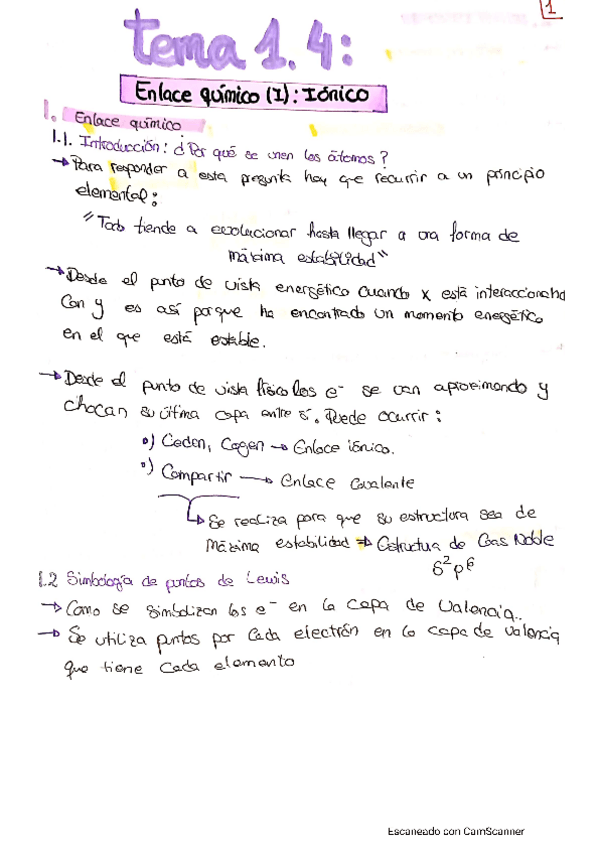 1
tema 1.4:
Enlace químico (I): Iónico
1. Enlace químico
1.1. Introducción: ¿Por qué se unen los átomos?
→Para responder a esta pregunta hay que recurrir a un principio
elemental:
"Todo tiende a evolucionar hasta llegar a una forma de
máxima estabilidad"
→Desde el punto de vista energético cuando x está interaccionando
con y es así porque ha encontrado un momento energético
en el que está estable.
→Desde el punto de vista físico los e⁻ se van aproximando y
chocan su última capa entre sí. Puede ocurrir:
•) Ceden, Cogen → Enlace iónico.
•) Compartir → Enlace Covalente
↳ Se realiza para que su estructura sea de
máxima estabilidad ⇒ Estructura de Gas Noble
s²p⁶
1.2 Simbología de puntos de Lewis
→ Como se simbolizan los e⁻ en la capa de valencia..
→ Se utiliza puntos por cada electrón en la capa de valencia
que tiene cada elemento
Escaneado con CamScanner